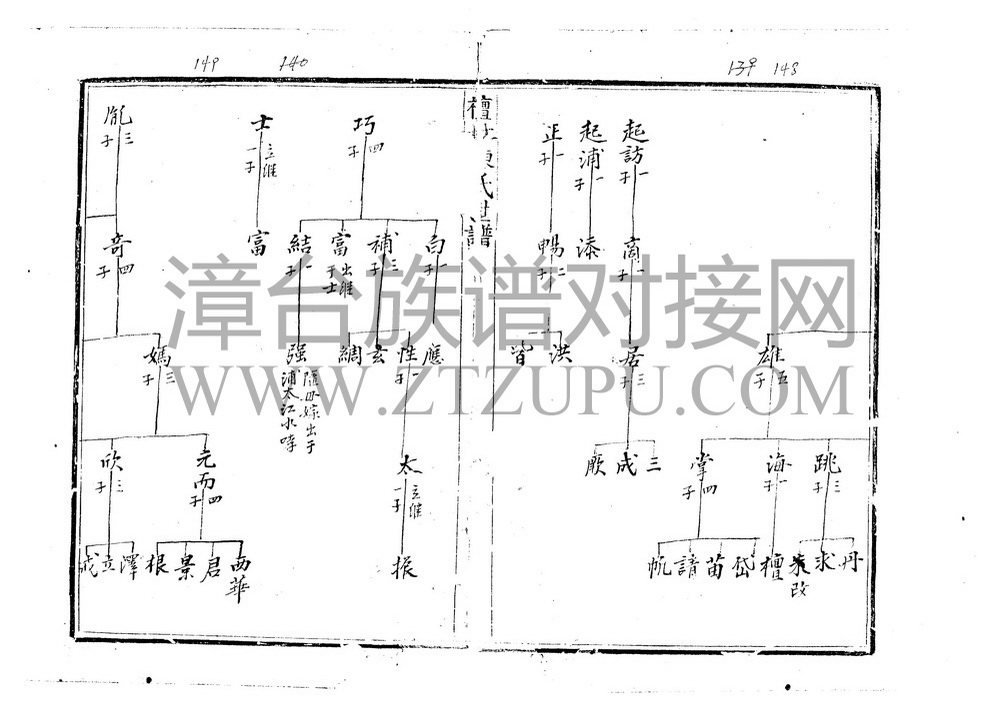 149 140
139 148
起訪 一子
起浦 一子
正 一子
商 一子
添
暢 二子
雄 五子
居 三子
洪
皆
跳 三子
海 一子
掌 四子
三
成
厥
丹
求
改
檀
岱
苗
請
帆
氏世譜
巧 四子
士 立继 一子
胤 三子
向 一子
補 三子
富 出继于士
結 一子
富
奇 四子
應
性 一子
玄
綢
强 隨母嫁出于浦太江水哮
媽 三子
太 立继 一子
元而 四子
欣 三子
振
西華
君
景
根
澤
立
成
漳台族谱对接网
WWW.ZTZUPU.COM